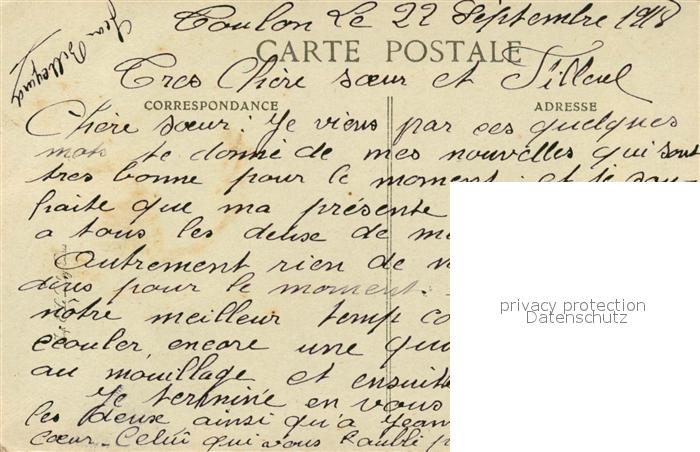 Toulon Le 22 Septembre 1918
Jean
CARTE POSTALE
Tres Chère sœur et Filleul
CORRESPONDANCE
ADRESSE
Chère sœur: Je viens par ces quelques
mots te donné de mes nouvelles qui sont
tres bonne pour le moment. et je sou-
haite que ma présente
a tous les deux de mê
Autrement rien de n
dire pour le moment.
notre meilleur temp co
ecouler encore une qu
au mouillage et ensuite
Je terminé en vous
les deux ainsi qu'a Jean
cœur. Celui qui vous
privacy protection
Datenschutz